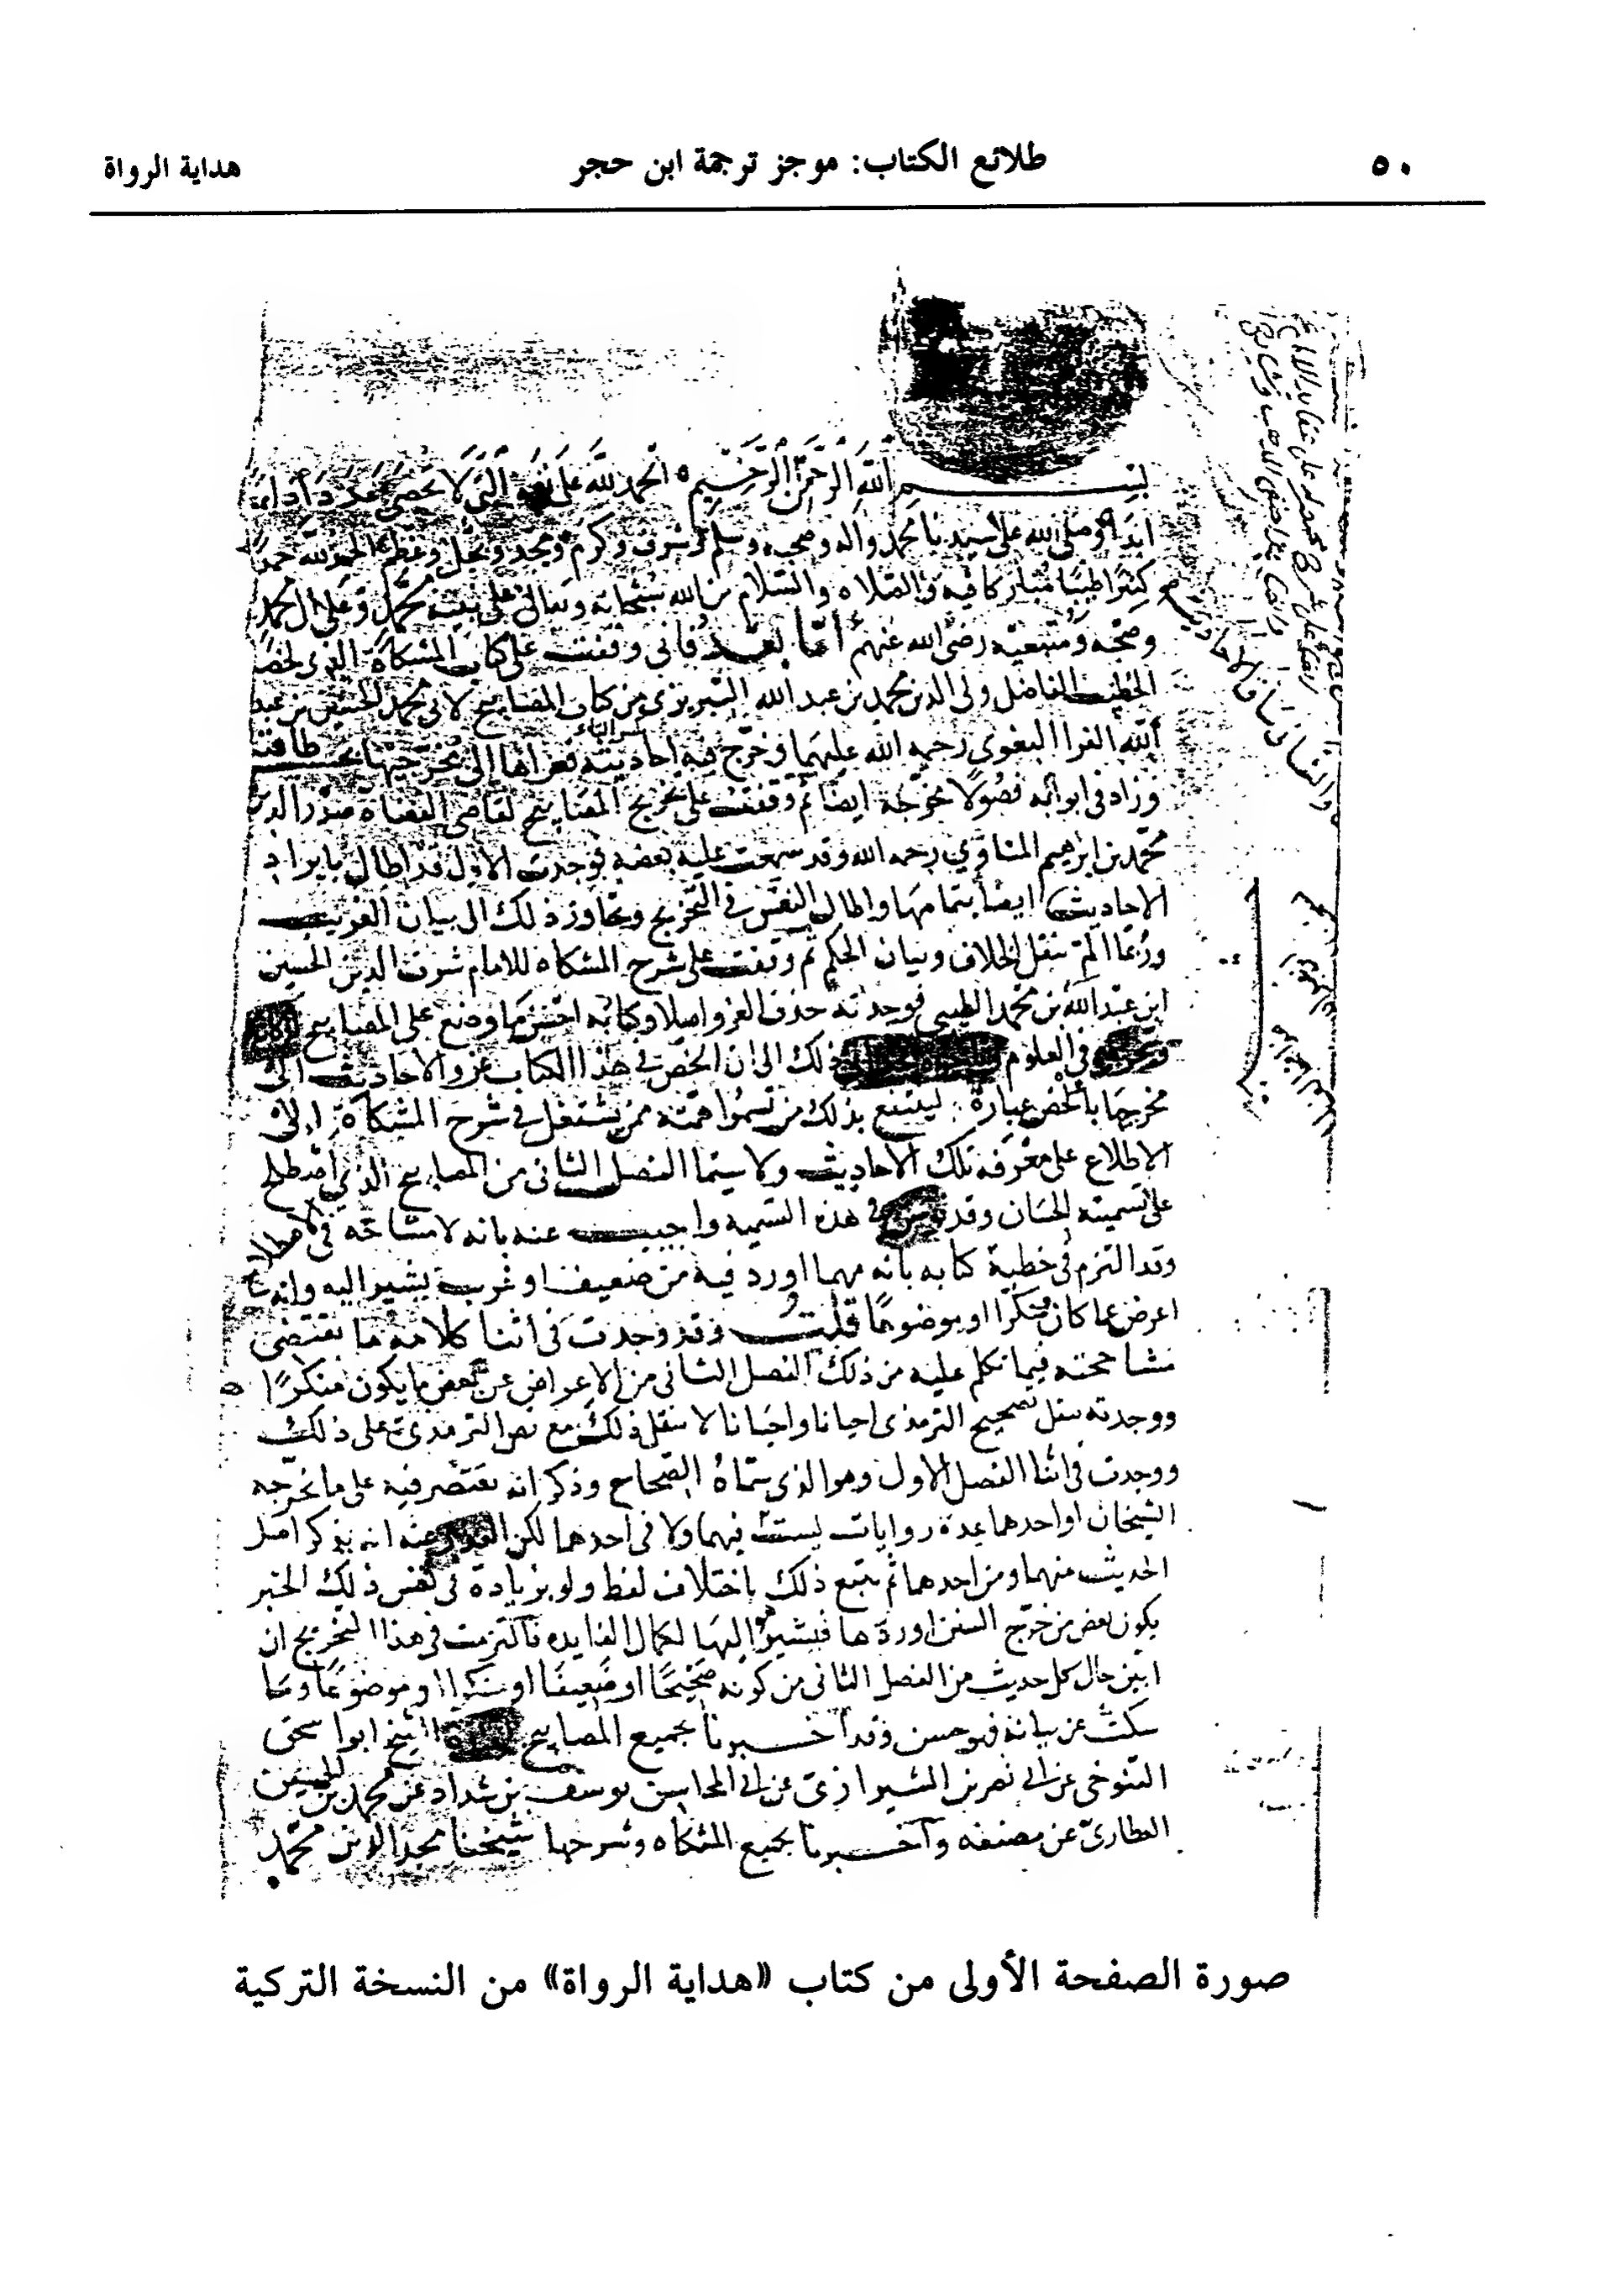 ٥٠
طلائع الكتاب: موجز ترجمة ابن حجر
هداية الرواة
بسم الله الرحمن الرحيم الحمد لله على نعمه التي لا تحصى عددا دائمة
ابدا وصلى الله على سيدنا محمد واله وصحبه وسلم وشرف وكرم ومجد وبجل وعظم الحمد لله حمدا
كثيرا طيبا مباركا فيه والصلاه والسلام من الله سبحانه وتعالى على نبيه محمد وعلى ال محمد
وصحبه ومتبعيه رضي الله عنهم أما بعد فاني وقفت على كتاب المشكاة الذي لخصه
الخطيب الفاضل ولي الدين محمد بن عبد الله التبريزي من كتاب المصابيح لابي محمد الحسين بن
الله الفرا البغوي رحمة الله عليهما وخرج فيه احاديثه فعزاها الى مخرجيها
وزاد في ابوابه فصولا مخرجة ايضا ثم وقفت على تخريج المصابيح لقاضي القضاة صدر الدين
محمد بن ابرهيم المناوي رحمه الله وقد سمعت عليه بعضه فوجدت الاول قد اطال بايراد
الاحاديث ايضا بتمامها واطال النفس في التخريج وتجاوز ذلك الى بيان الغريب
وربما الم بنقل الخلاف وبيان الحكم ثم وقفت على شرح المشكاه للامام شرف الدين الحسين
ابن عبد الله بن محمد الطيبي فوجدته حذف العزو اصلا وكتابه احسن ما وضع على المصابيح
في العلوم ذلك الى ان الخص في هذا الكتاب عزو الاحاديث الى
مخرجها بالخص عبارة لينتفع بذلك من تسموا همته ممن يشتغل في شرح المشكاة الى
الاطلاع على معرفة تلك الاحاديث ولا سيما الفصل الثاني من المصابيح الذي اصطلح
على تسميته الحسان وقد في هذه التسمية واجيب عنه بانه لا مشاحة في الاصطلاح
وقد التزم في خطبة كتابه بانه مهما اورد فيه من ضعيف او غريب يشير اليه وانه
اعرض عما كان منكرا او موضوعا قلت وقد وجدت في اثنا كلامه ما يقتضي
مشاححته فيما تكلم عليه من ذلك الفصل الثاني من الاعراض عن بعض ما يكون منكرا
ووجدته ينقل تصحيح الترمذي احيانا واحيانا لا ينقل ذلك مع نص الترمذي على ذلك
ووجدت في اثنا الفصل الاول وهو الذي سماه الصحاح وذكر انه يقتصر فيه على ما يخرجه
الشيخان او احدهما عدة روايات ليست فيهما ولا في احدهما لكن عنه انه يذكر اصل
الحديث منهما ومن احدهما ثم يتبع ذلك باختلاف لفظ ولو بزيادة في نفس ذلك الخبر
يكون بعض من خرج السنن اوردها فيشير اليها لكمال الفايده فالتزمت في هذا التخريج ان
ابين حال كل حديث من الفصل الثاني من كونه صحيحا او ضعيفا او منكرا او موضوعا وما
سكت عن بيانه فهو حسن وقد اخبرنا بجميع المصابيح الشيخ ابو اسحق
التنوخي عن ابي نصر بن الشيرازي عن ابي المحاسن يوسف بن شداد عن محمد بن الحسين
العطاري عن مصنفه واخبرنا بجميع المشكاه وشرحها شيخنا مجد الدين محمد
صورة الصفحة الأولى من كتاب «هداية الرواة» من النسخة التركية